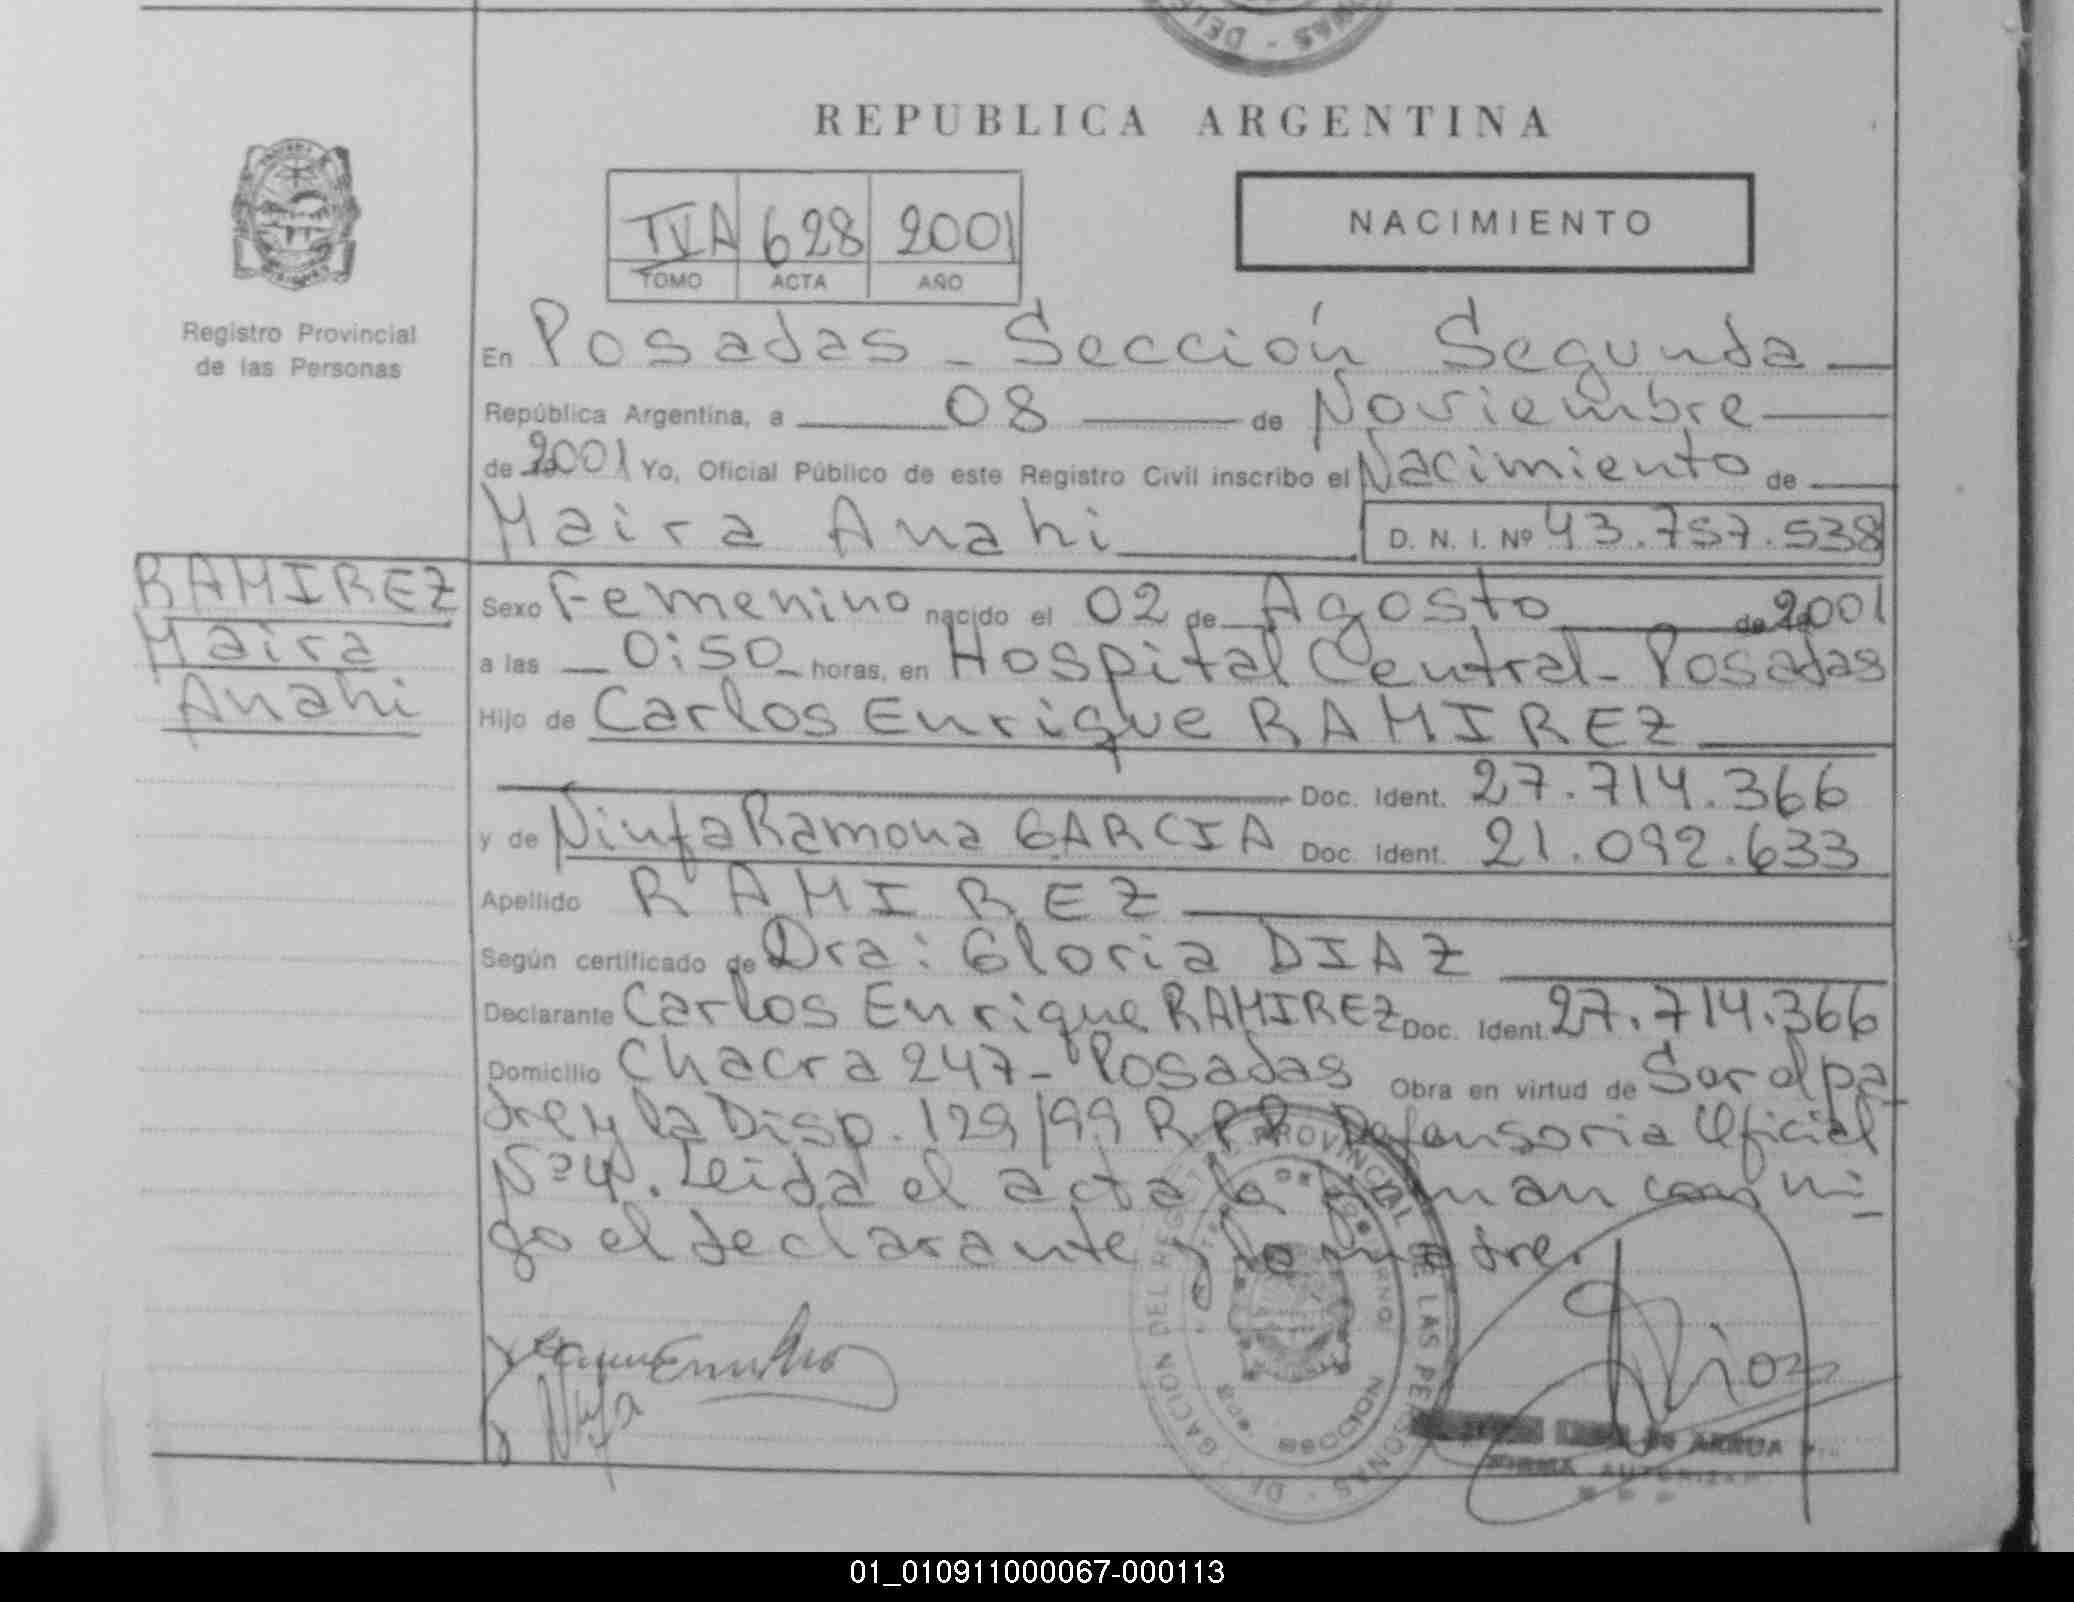 REPUBLICA ARGENTINA
TVA 628 2001
TOMO ACTA AÑO
NACIMIENTO
Registro Provincial
de las Personas
En Posadas - Sección Segunda
República Argentina, a 08 de Noviembre
de 2001 Yo, Oficial Público de este Registro Civil inscribo el Nacimiento de
Maira Anahi D. N. I. Nº 43.757.538
RAMIREZ
Maira
Anahi
Sexo Femenino nacido el 02 de Agosto de 2001
a las 0:50 horas, en Hospital Central - Posadas
Hijo de Carlos Enrique RAMIREZ
Doc. Ident. 27.714.366
y de Ninfa Ramona GARCIA Doc. Ident. 21.092.633
Apellido RAMIREZ
Según certificado de Dra: Gloria DIAZ
Declarante Carlos Enrique RAMIREZ Doc. Ident. 27.714.366
Domicilio Chacra 247 - Posadas Obra en virtud de Ser el pa
dre y la Disp. 129/99 R P P Defensoria Oficial
Nº 4. Leida el acta la firman conmi
go el declarante y la madre.
Ninfa
01_010911000067-000113